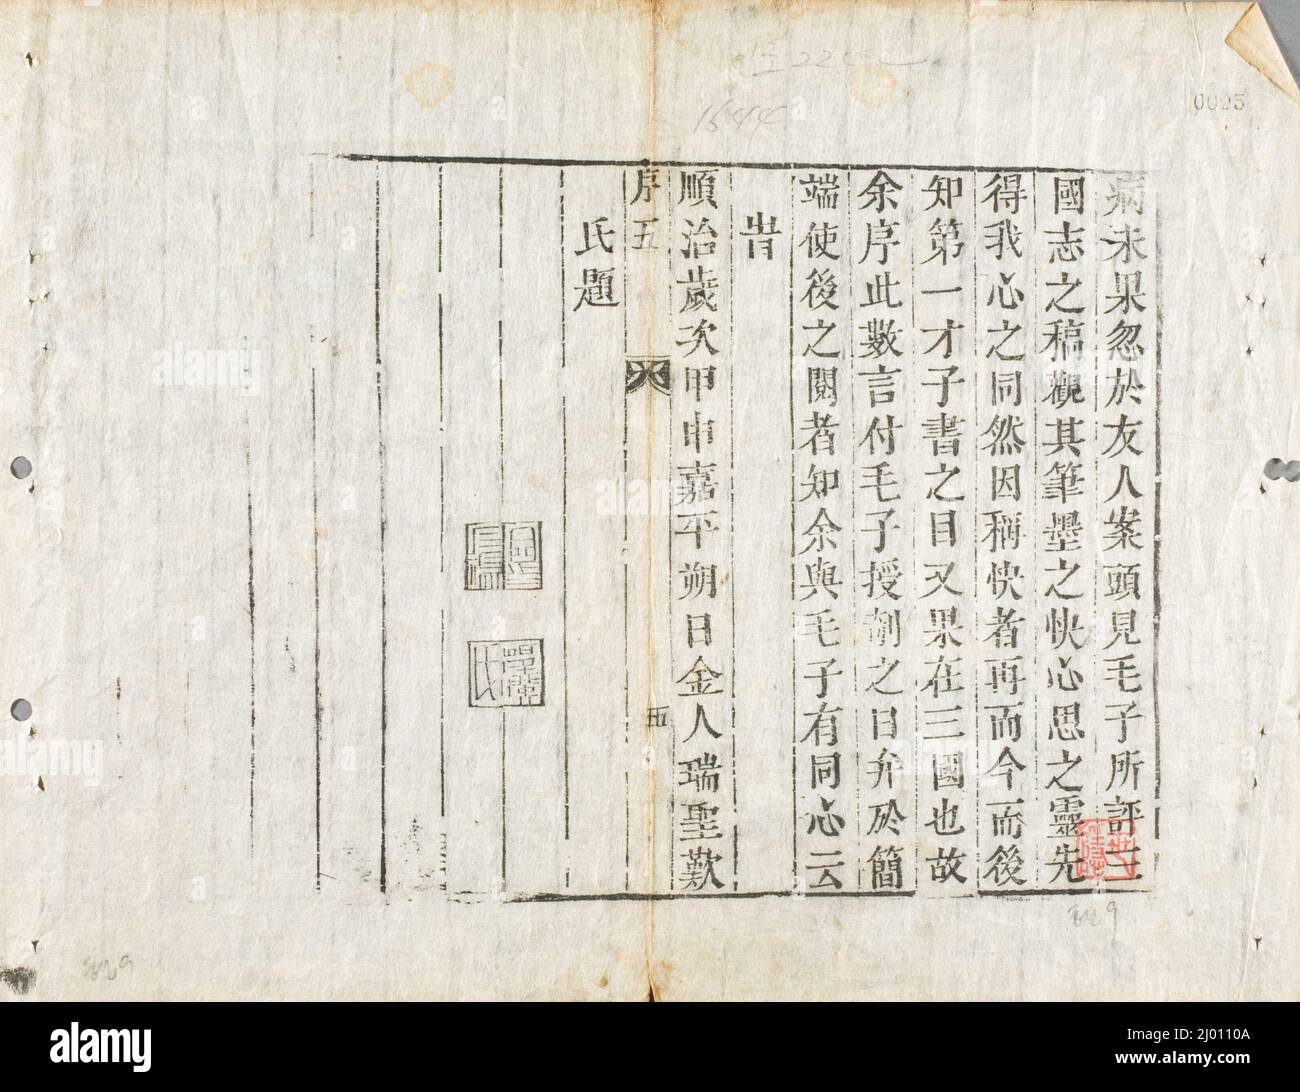 病未果忽於友人案頭見毛子所評三
國志之稿觀其筆墨之快心思之靈先
得我心之同然因稱快者再而今而後
知第一才子書之目又果在三國也故
余序此數言付毛子授剞之日弁於簡
端使後之閱者知余與毛子有同心云
旹
順治歲次甲申嘉平朔日金人瑞聖歎
序五
五
氏題
0025
1644
alamy
Image ID: 2JQ110A
www.alamy.com